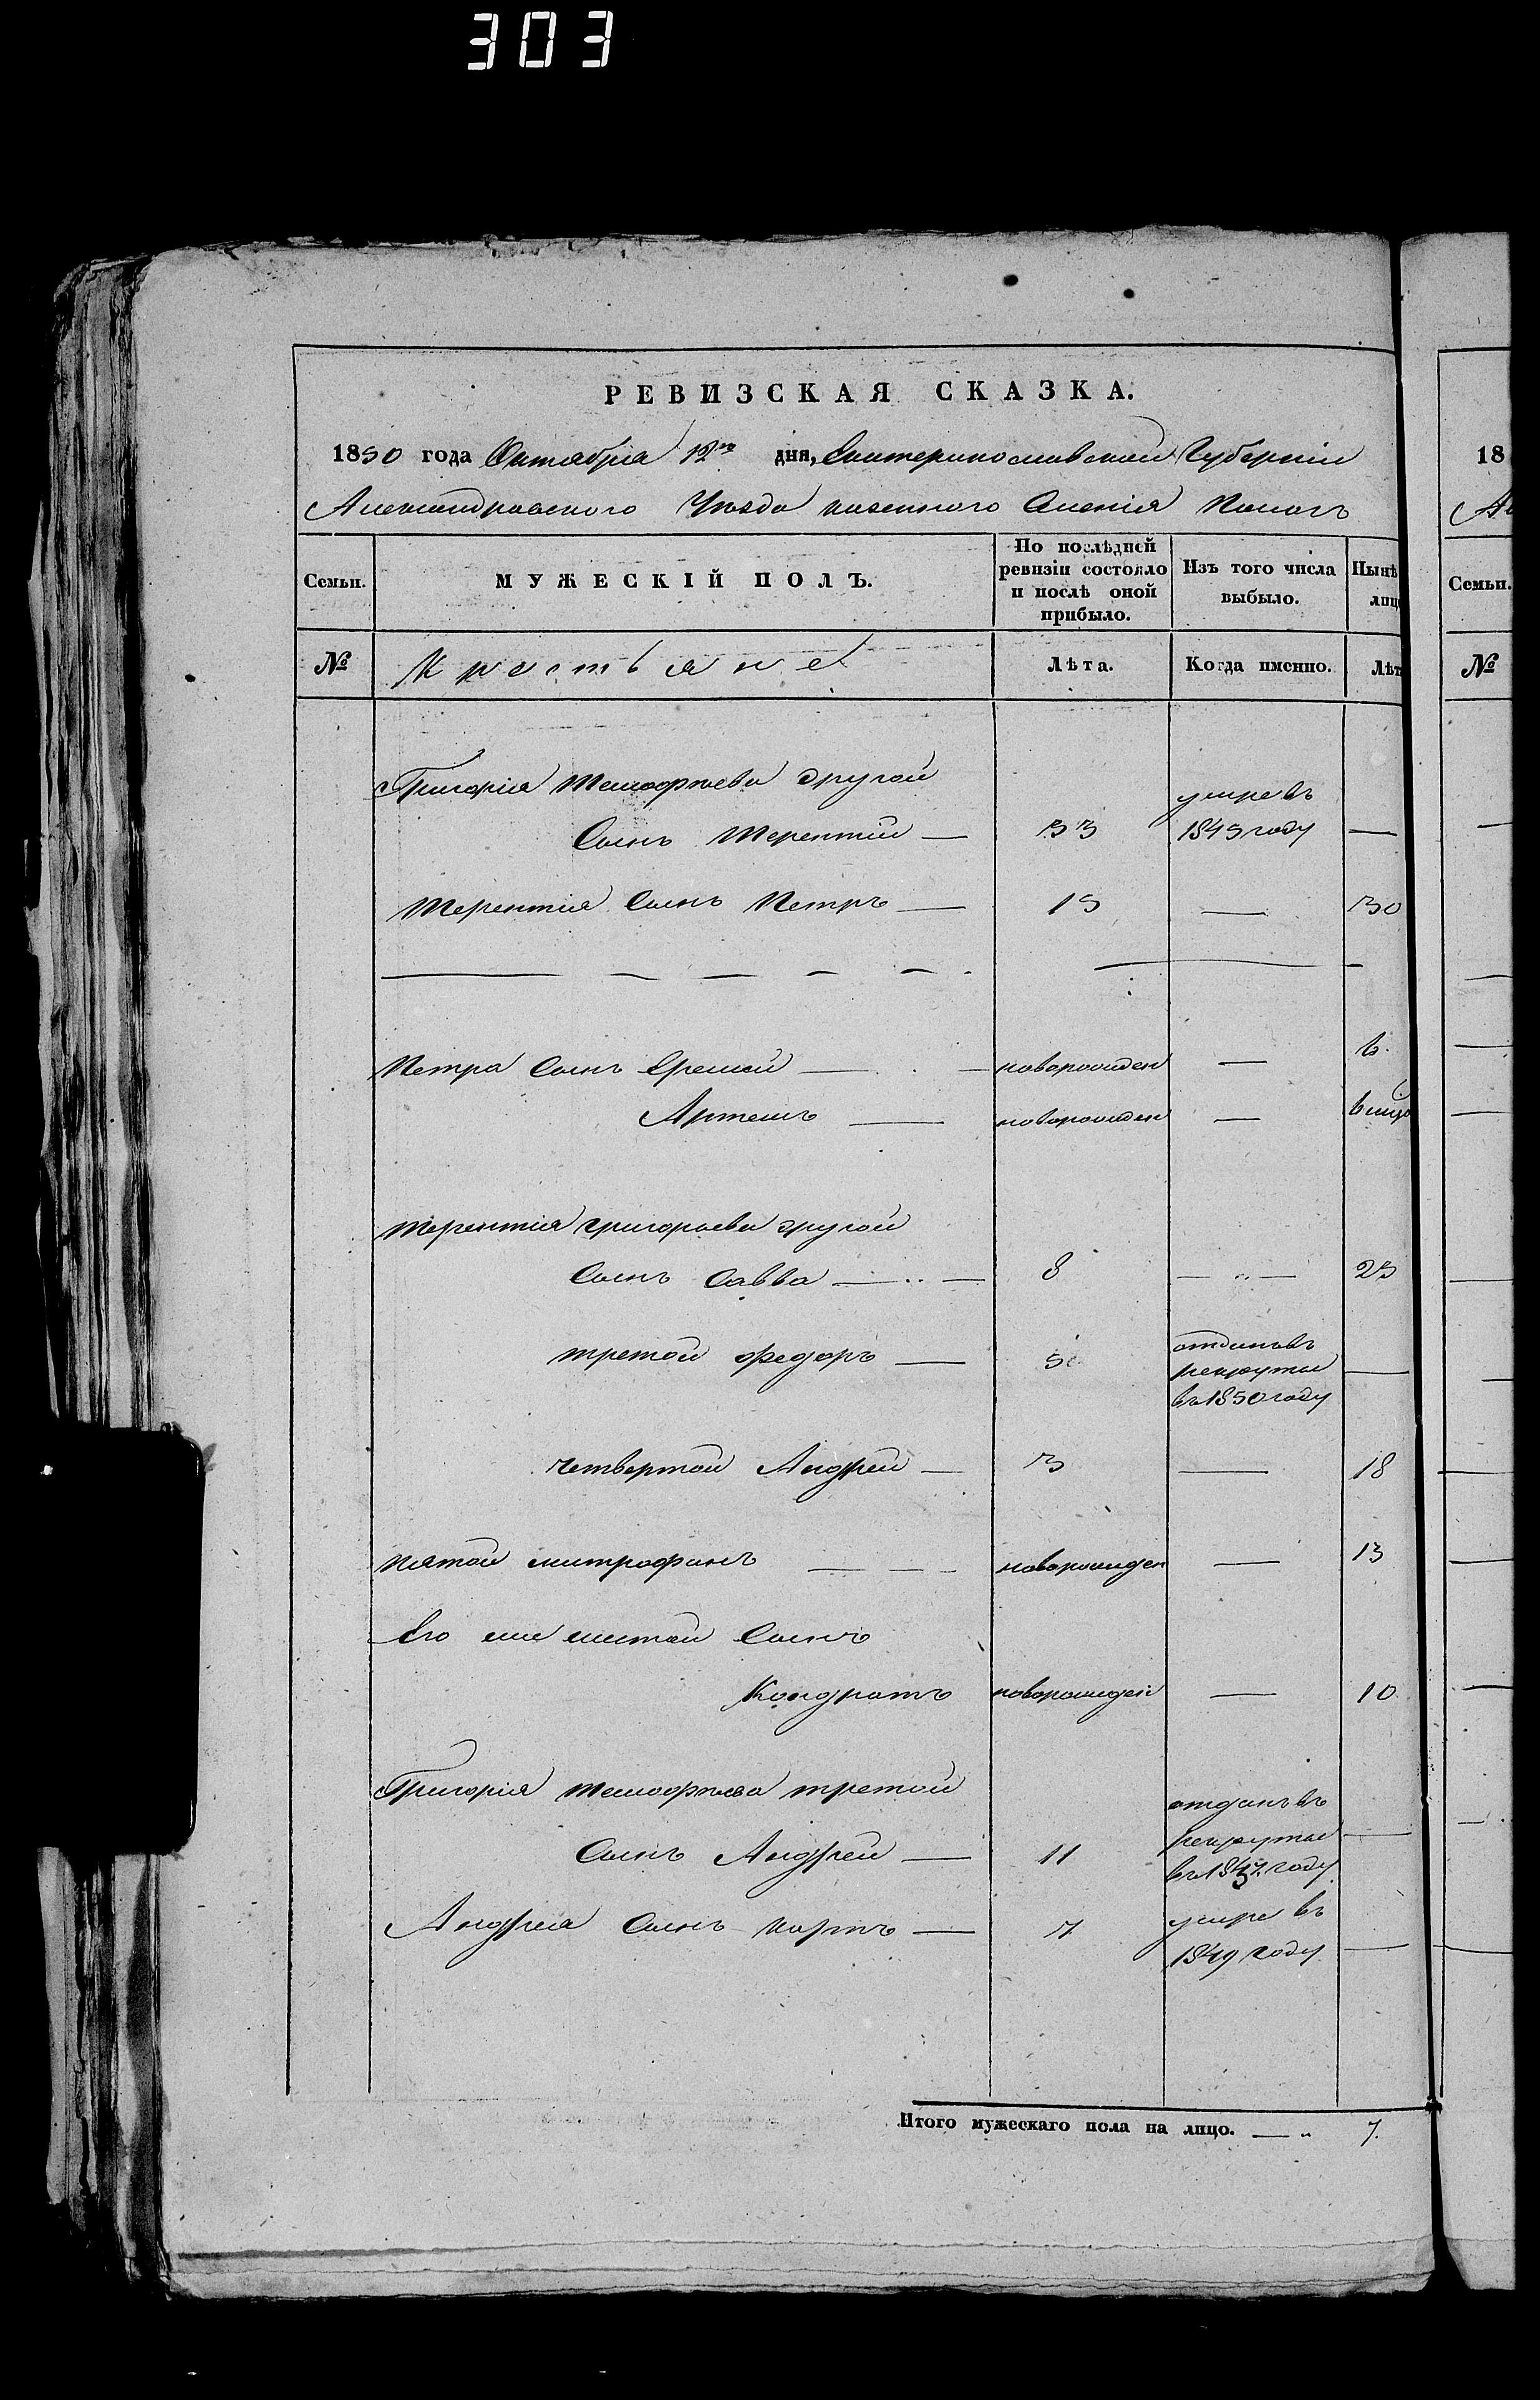 303
РЕВИЗСКАЯ СКАЗКА.
1850 года Октября 12го дня, Екатеринославской Губернiи
Александровского Уѣзда казенного Селенiя
Семьи. МУЖЕСКIЙ ПОЛЪ. По послѣдней ревизiи состояло и послѣ оной прибыло. Изъ того числа выбыло. Нынѣ лицо
№ Крестьяне Лѣта. Когда именно. Лѣт
Григорiя Тимофѣева другой умре въ
Сынъ Терентiй — 33 1845 году —
Терентiя Сынъ Петръ — 15 — 30
Петра Сынъ Еремей — новорожден — 6
Артемъ — новорожден —
Терентiя Григорьева другой
Сынъ Савва — 8 — 23
третой Федоръ — 5 отданъ въ рекруты въ 1850 году —
четвертой Андрей — 3 — 18
пятой митрофанъ — новорожден — 13
Его же шестой Сынъ
Кондратъ новорожден — 10
Григорiя Тимофѣева третой
Сынъ Андрей — 11 отданъ въ рекруты въ году —
Андрея Сынъ Карпъ — 7 умре въ 1849 году —
Итого мужескаго пола на лицо. — 7.
18
Семьи.
№